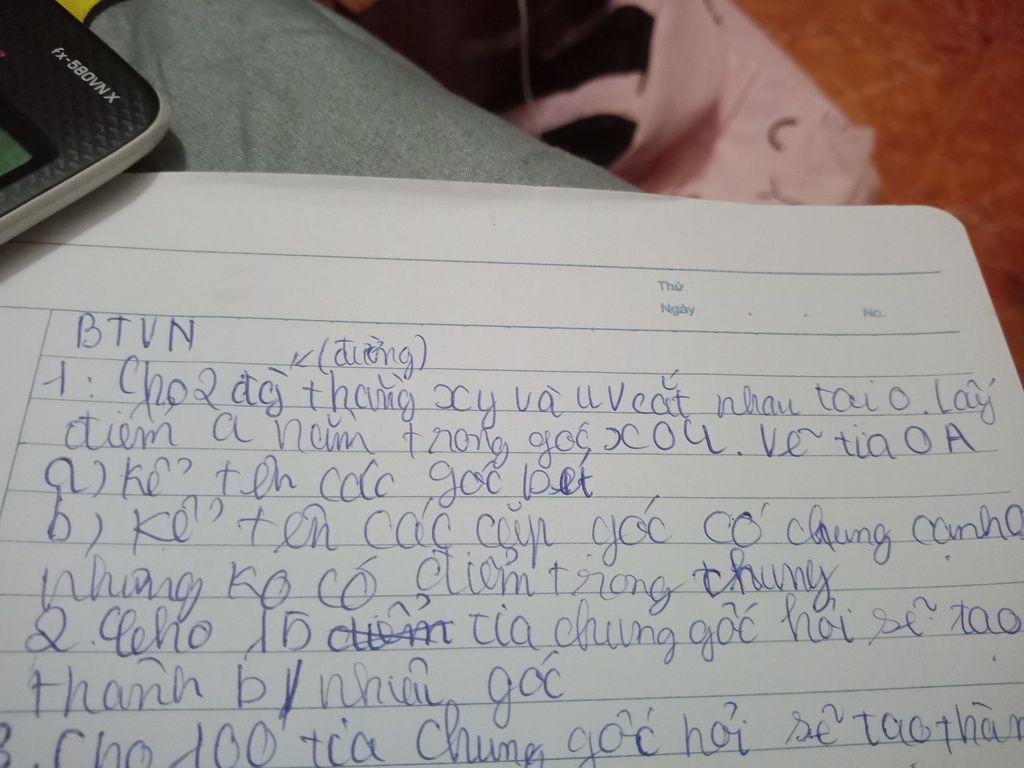 fx-580VN X
Thứ
Ngày . . No.
BTVN
(đường)
1: Cho 2 đg thẳng xy và uv cắt nhau tại O. Lấy
điểm a nằm trong góc xOu. Vẽ tia OA
a) Kể tên các góc bẹt
b) Kể tên các cặp góc có chung cạnh
nhưng ko có điểm trong chung
2. Cho 15 điểm tia chung gốc hỏi sẽ tạo
thành b/ nhiêu góc
3. Cho 100 tia chung gốc hỏi sẽ tạo thàn